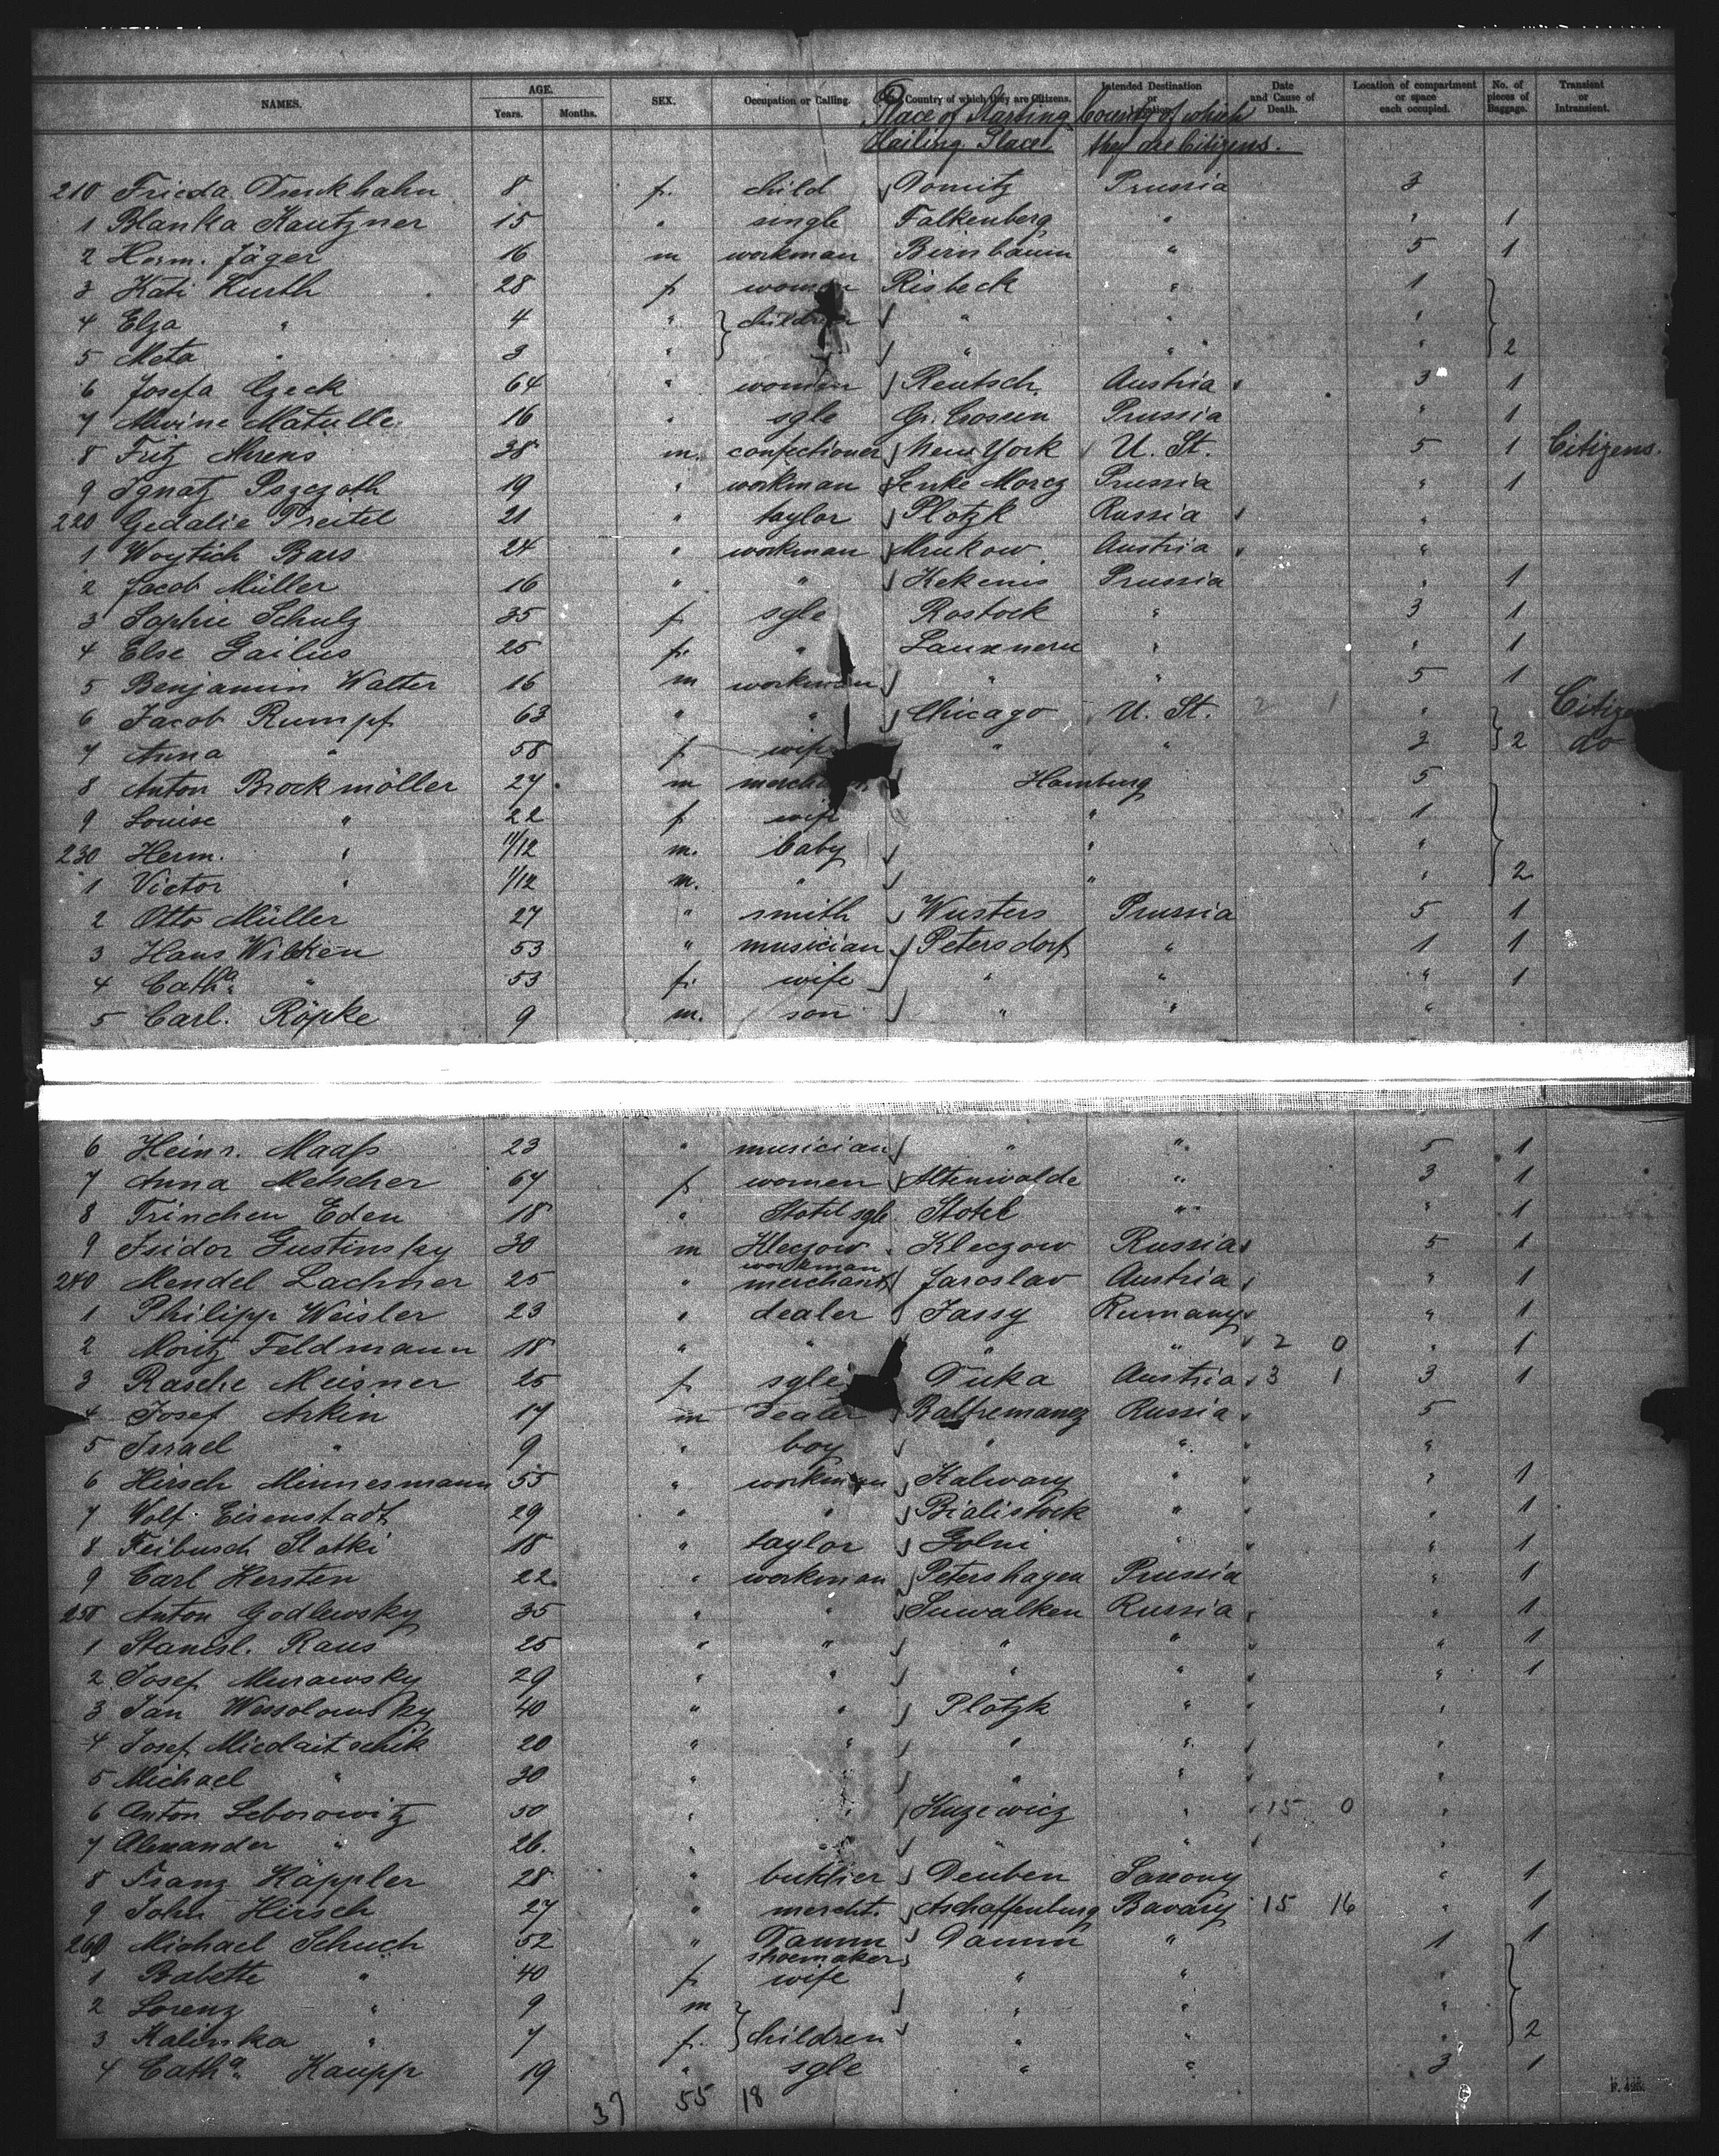 NAMES. AGE. Years. Months. SEX. Occupation or Calling. Country of which they are Citizens. Intended Destination or Location. Date and Cause of Death. Location of compartment or space each occupied. No. of pieces of Baggage. Transient or Intransient.
Place of Starting Country of which
Hailing Place they are Citizens.
210 Frieda 8 f. child Domitz Prussia 3
1 Blanka Kautzner 15 " single Falkenberg " " 1
2 Herm. Jäger 16 m workman Birnbaum " 5 1
3 Kati Kurth 28 f woman Risbeck " 1
4 Elza " 4 " children " " "
5 Meta " 3 " " " " 2
6 Josefa Czeck 64 " women Reutsch Austria 3 1
7 Alwine Matulle 16 " sgle Gr. Crossen Prussia " 1
8 Fritz Ahrens 38 m. confectioner New York U. St. 5 1 Citizens.
9 Ignatz 19 " workman Prussia " 1
220 Gedalie Treitel 21 " taylor Plotzk Russia "
1 Woytich Bars 24 " workman Mrukow Austria "
2 Jacob Müller 16 " " Kekenis Prussia " 1
3 Sophie Schulz 35 f. sgle Rostock " 3 1
4 Else Gailus 25 f. " " " 1
5 Benjamin Walter 16 m workman " " 5 1
6 Jacob Rumpf 63 " " Chicago U. St. 2 1 "
7 Anna " 58 f wife " " 3 2 do
8 Anton Brockmöller 27 m merchant Hamburg 5
9 Louise " 22 f wife " 1
230 Herm. " 11/12 m. baby " "
1 Victor " 1/12 m. " " " 2
2 Otto Müller 27 " smith Wusters Prussia 5 1
3 Hans Wilken 53 " musician Petersdorf " 1 1
4 Catha. " 53 f. wife " " " 1
5 Carl. Röpke 9 m. son " " "
6 Heinr. Maaß 23 " musician " " 5 1
7 Anna Metscher 67 f women Altenwalde " 3 1
8 Trinchen Eden 18 " Stotel sgle Stotel " " 1
9 Isidor Gustinsky 30 m Kleczow Kleczow Russia 5 1
workman
240 Mendel Lachner 25 " merchant Jaroslav Austria " 1
1 Philipp Weisler 23 " dealer Jassy Rumany " 1
2 Moritz Feldmann 18 " " " " 2 0 " 1
3 Rasche Meisner 25 f sgle Duka Austria 3 1 3 1
4 Josef Arkin 17 m dealer Russia 5
5 Israel " 9 " boy " " "
6 Hirsch Minnermann 55 " workman Kalwary " " 1
7 Wolf Eisenstadt 29 " " Bialistock " " 1
8 Feibusch Slatki 18 " taylor Golni " " 1
9 Carl Hersten 22. " workman Petershagen Prussia " 1
250 Anton Godlewsky 35 " " Suwalken Russia " 1
1 Stanisl. Raus 25 " " " " " 1
2 Josef Murawsky 29 " " " " " 1
3 Jan Wessolowsky 40 " " Plotzk " "
4 Josef Micolaitschik 20 " " " " "
5 Michael " 30 " " " " "
6 Anton Leborowitz 50 " " Kuzewicz " 15 0 "
7 Alexander " 26. " " " " "
8 Franz Käppler 28 " butchier Deuben Saxony " 1
9 John Hirsch 27 " mercht. Aschaffenburg Bavary 15 16 " 1
260 Michael Schuch 52 " Damm Damm " 1 1
shoemaker
1 Babette " 40 f. wife " " "
2 Lorenz " 9 m " " "
3 Kalinka " 7 f. children " " " 2
4 Catha. Kaupp 19 " sgle " " 3 1
37 55 18